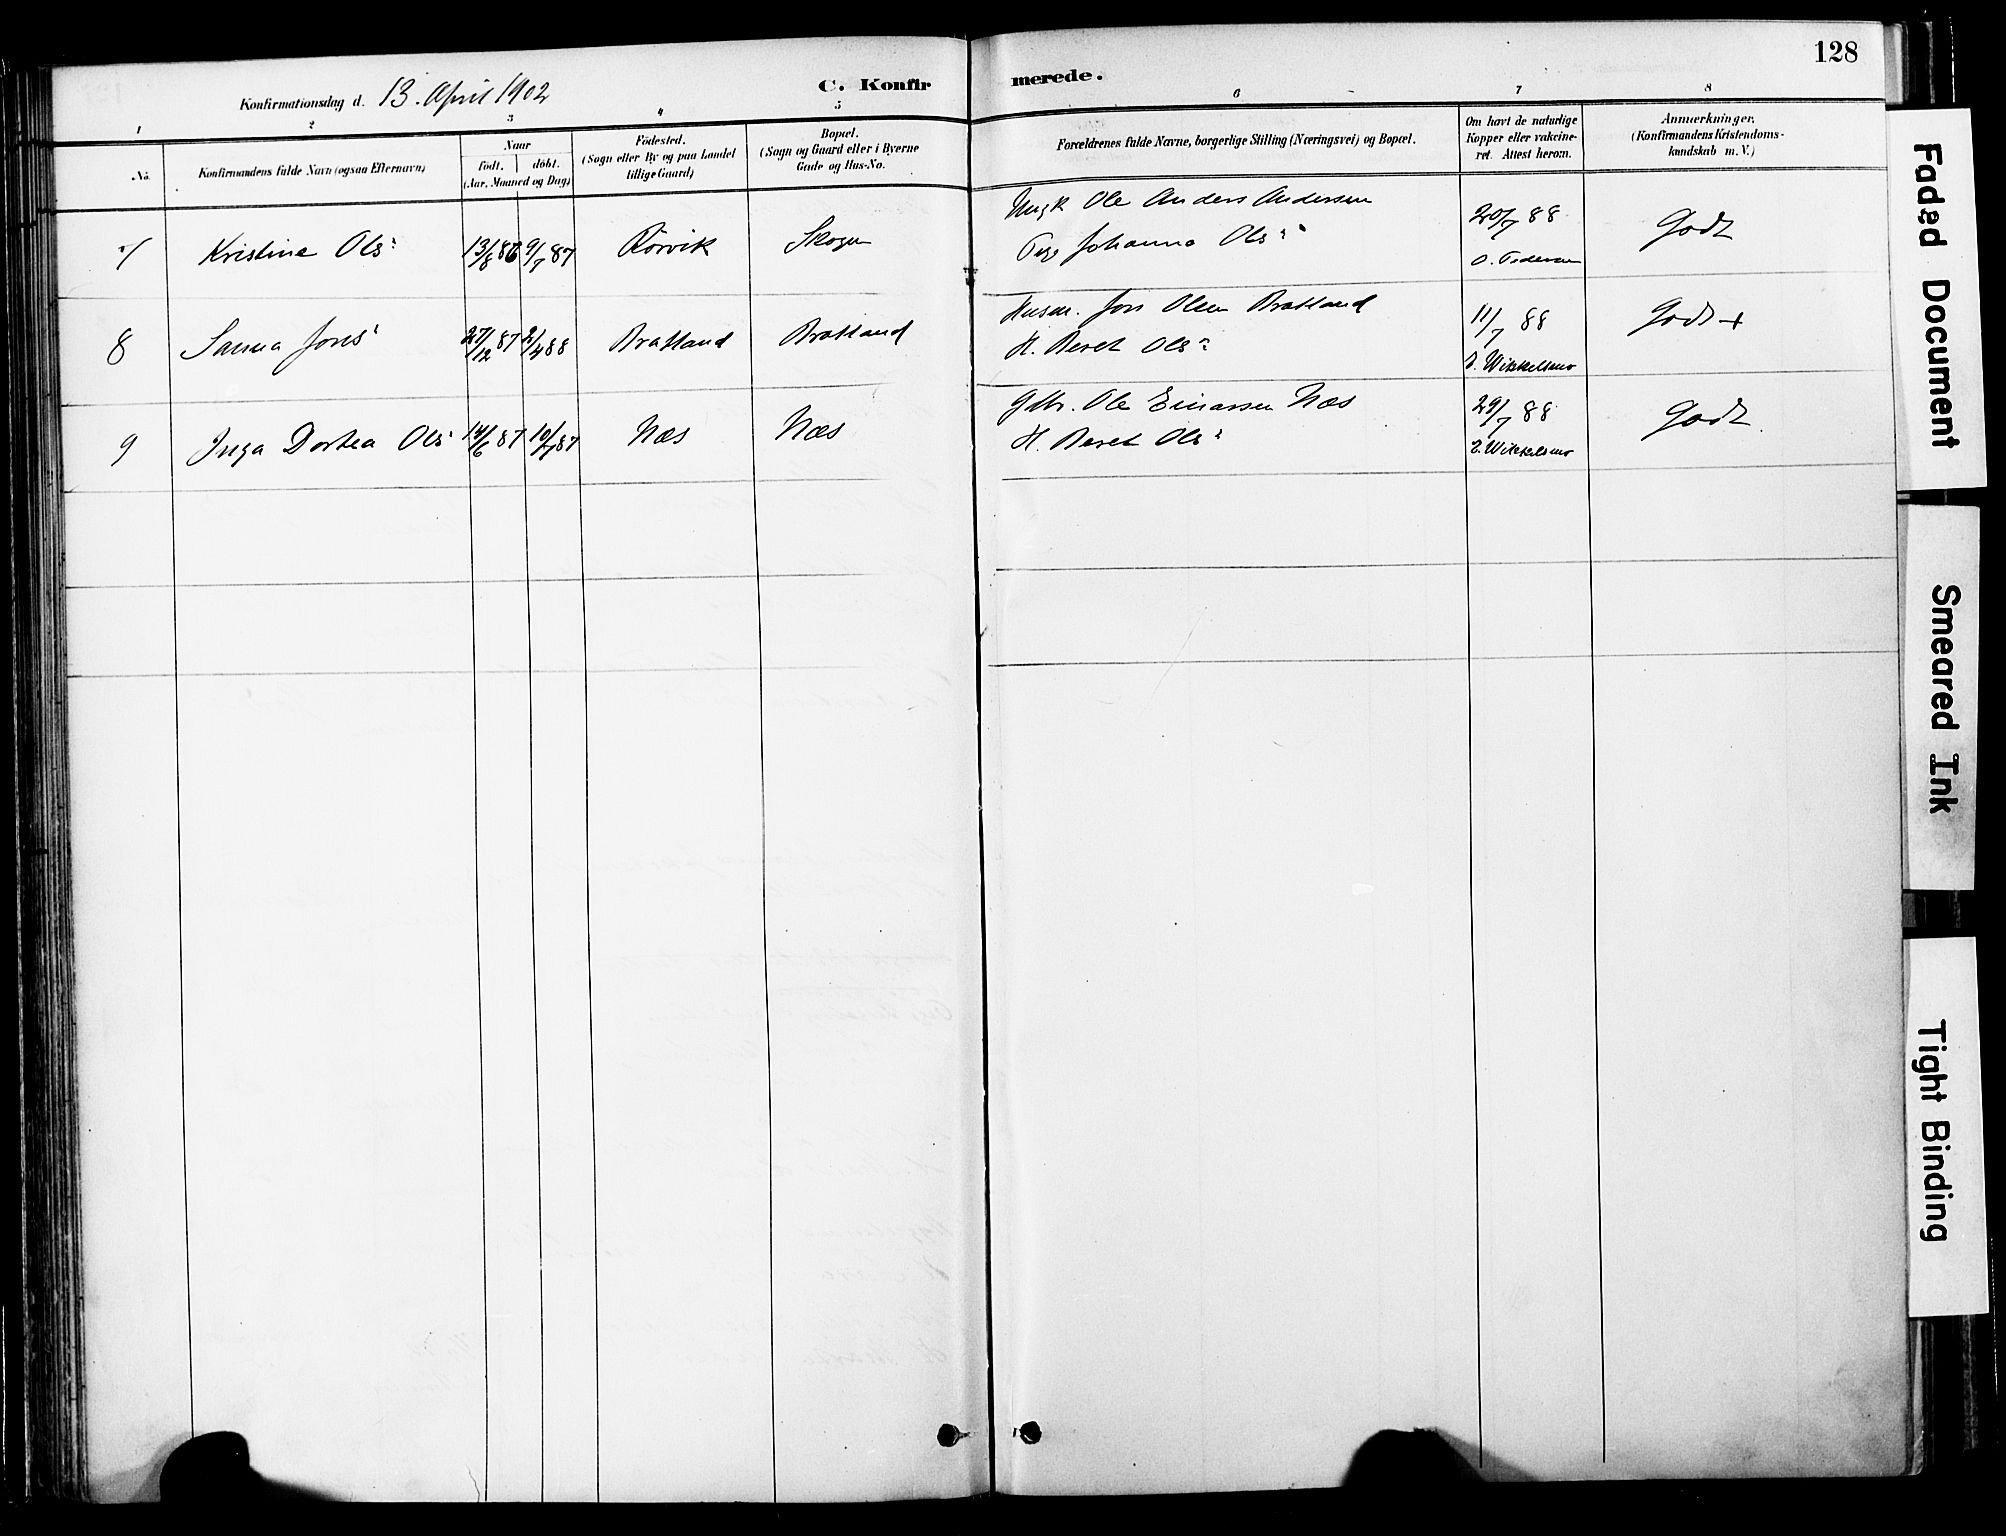 128
Konfirmationsdag d. 13. April 1902
C. Konfirmerede.
1 2 3 4 5 6 7 8
No.
Konfirmandens fulde Navn (ogsaa Efternavn)
Naar
födt. döbt.
(Aar, Maaned og Dag)
Födested.
(Sogn eller By og paa Landet
tillige Gaard)
Bopæl.
(Sogn og Gaard eller i Byerne
Gade og Hus-No.
Forældrenes fulde Navne, borgerlige Stilling (Næringsvei) og Bopæl.
Om havt de naturlige
Kopper eller vakcine-
ret. Attest herom.
Anmærkninger.
(Konfirmandens Kristendoms-
kundskab m. V.)
7 Kristine Olsᵈ 13/8 86 9/7 87 Rörvik Skogen
Ungk Ole Anders Andersen
Pige Johanna Olsᵈ
20/7 88
O. Pedersen
Godt
8 Sanna Jonsᵈ 27/12 87 2/4 88 Bratland Bratland
Husm. Jon Olsen Bratland
H. Beret Olsᵈ
11/7 88
Godt +
9 Inga Dortea Olsᵈ 14/6 87 10/7 87 Næs Næs
Gbr. Ole Einarsen Næs
H. Beret Olsᵈ
29/7 88
Godt
Faded Document
Smeared Ink
Tight Binding